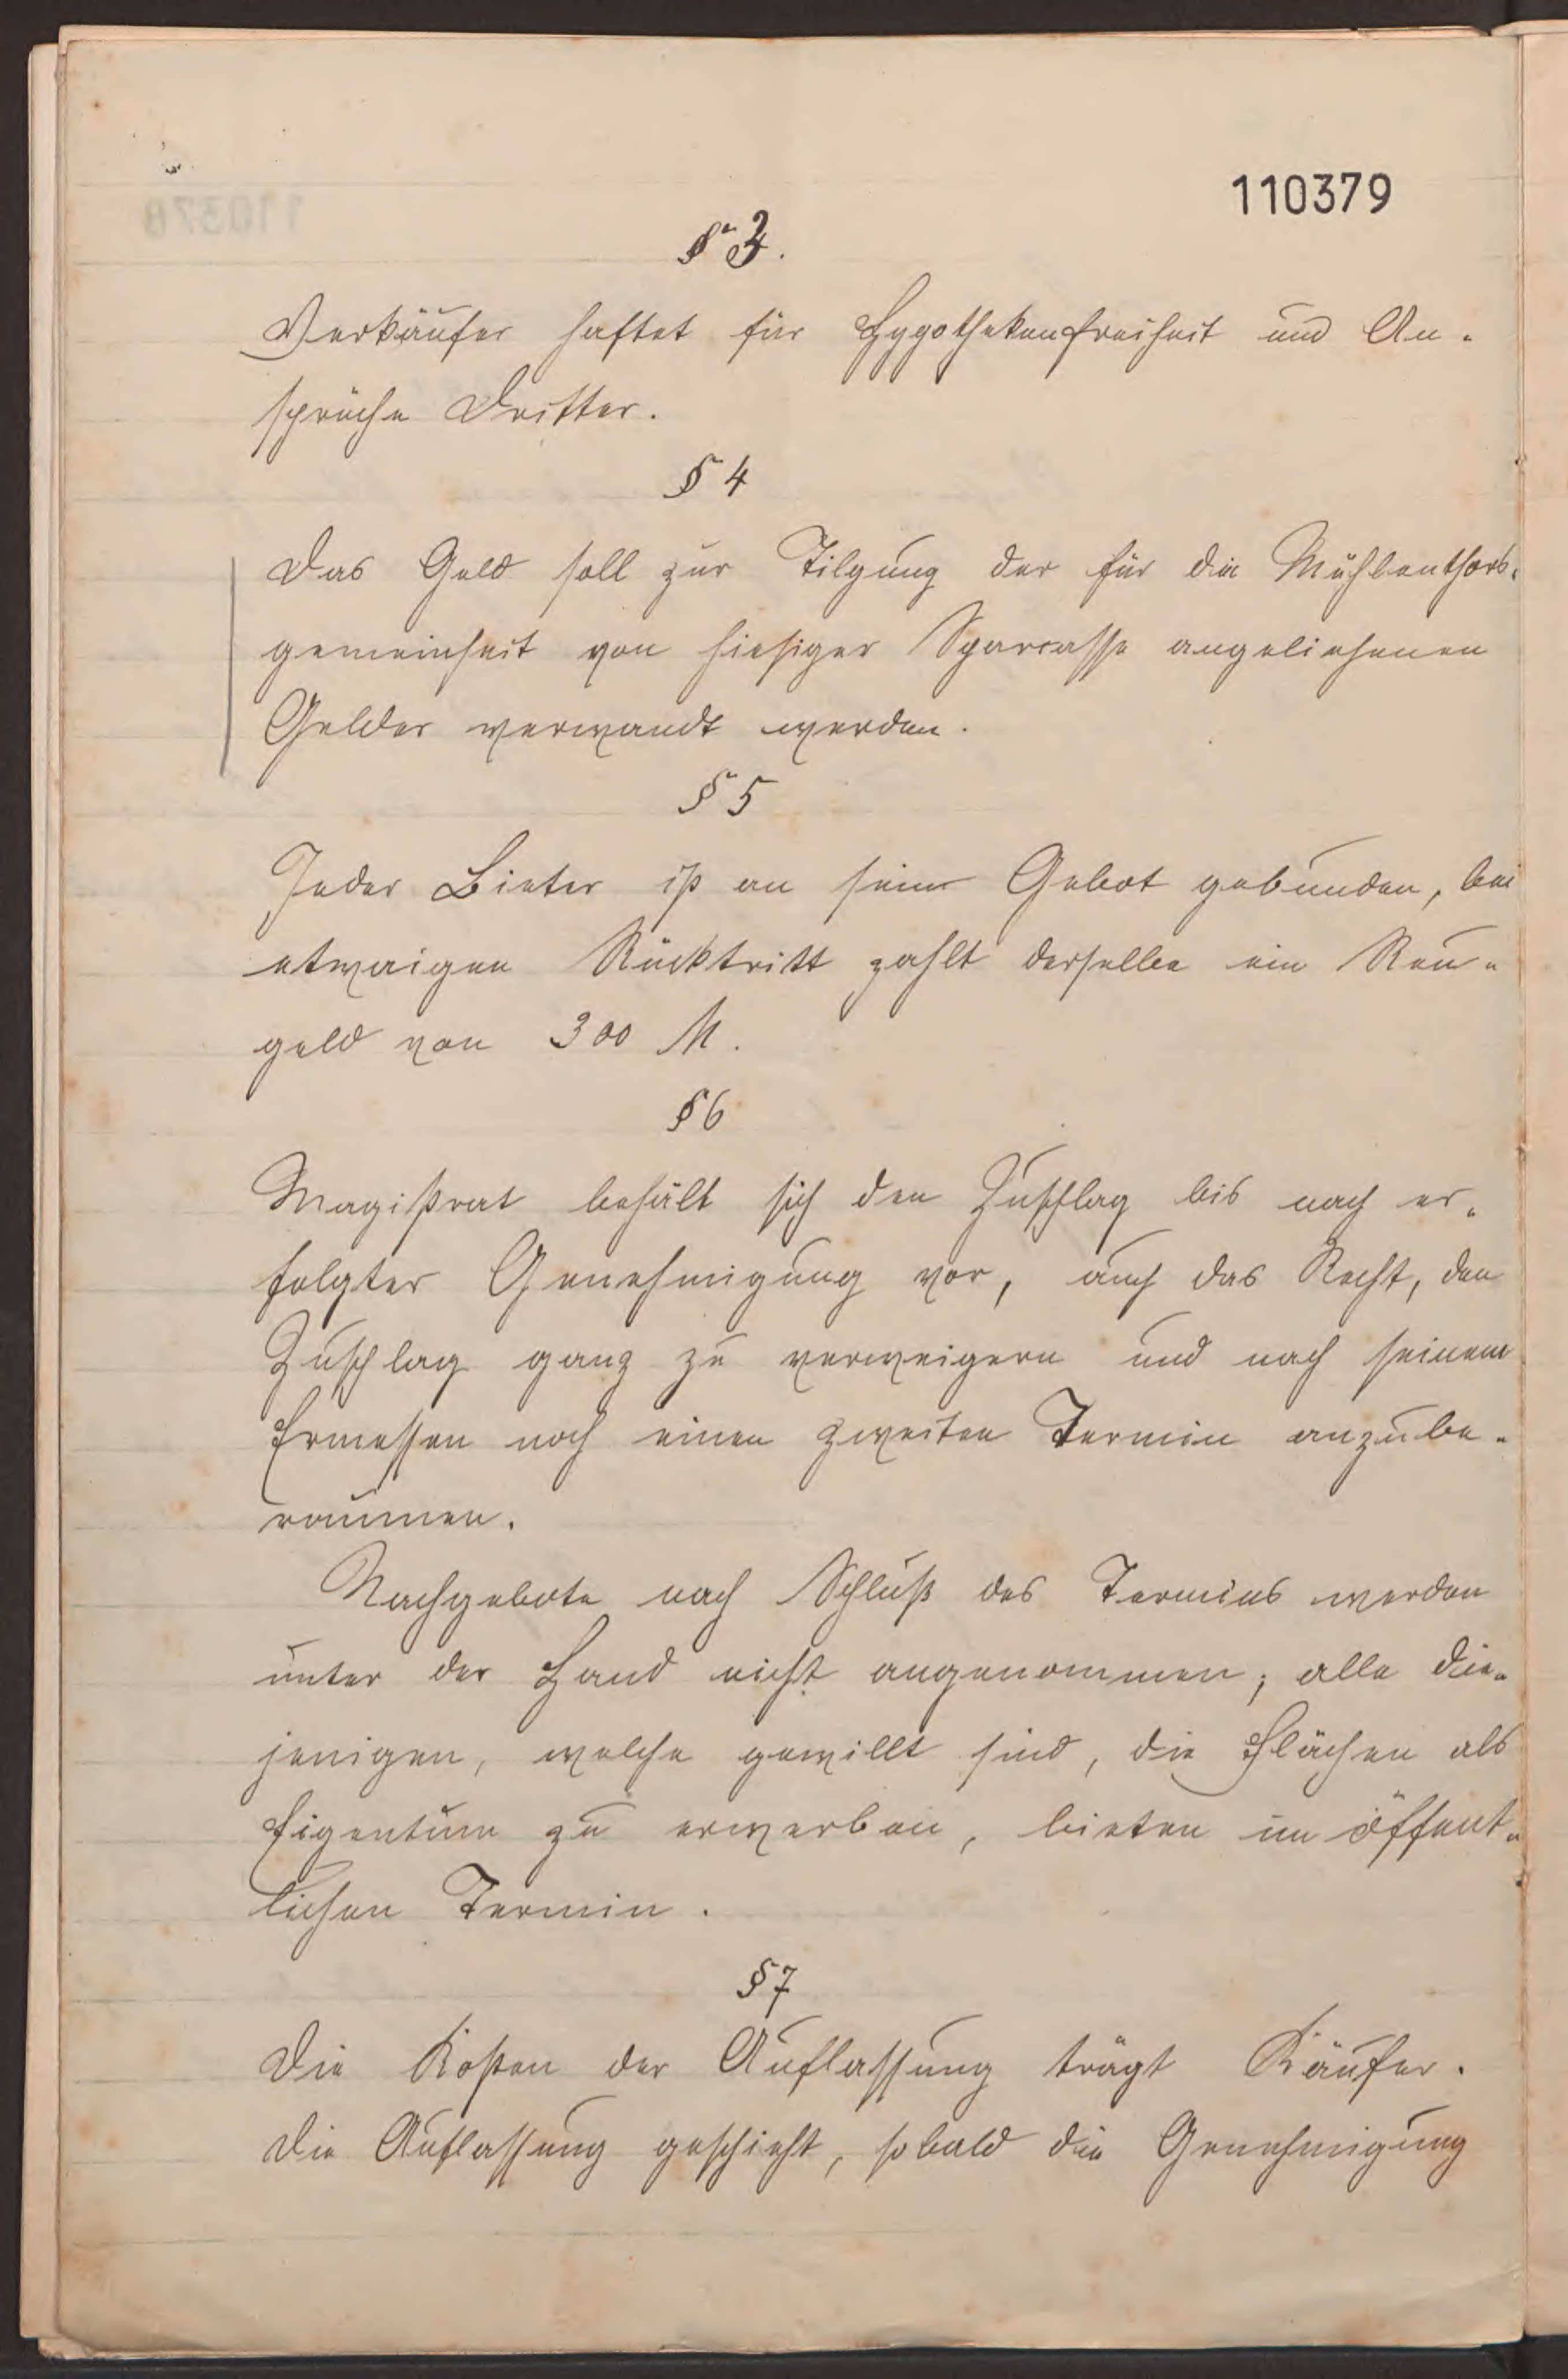 110379
§ 3.
Verkäufer haftet für Hypothekenfreiheit und An-
sprüche Dritter.
§ 4
Das Geld soll zur Tilgung der für die Mühlenthors-
gemeinheit von hiesiger Sparcasse angeliehenen
Gelder verwandt werden.
§ 5
Jeder Bieter ist an sein Gebot gebunden, bei
etwaigen Rücktritt zahlt derselbe ein Reu-
geld von 300 M.
§ 6
Magistrat behält sich den Zuschlag bis nach er-
folgter Genehmigung vor, auch das Recht, den
Zuschlag ganz zu verweigern und nach seinem
Ermessen noch einen zweiten Termin anzube-
raumen.
Nachgebote nach Schluß des Termins werden
unter der Hand nicht angenommen; alle die-
jenigen, welche gewillt sind, die Flächen als
Eigentum zu erwerben, bieten im öffent-
lichen Termin.
§ 7
Die Kosten der Auflassung trägt Käufer.
Die Auflassung geschieht, sobald die Genehmigung